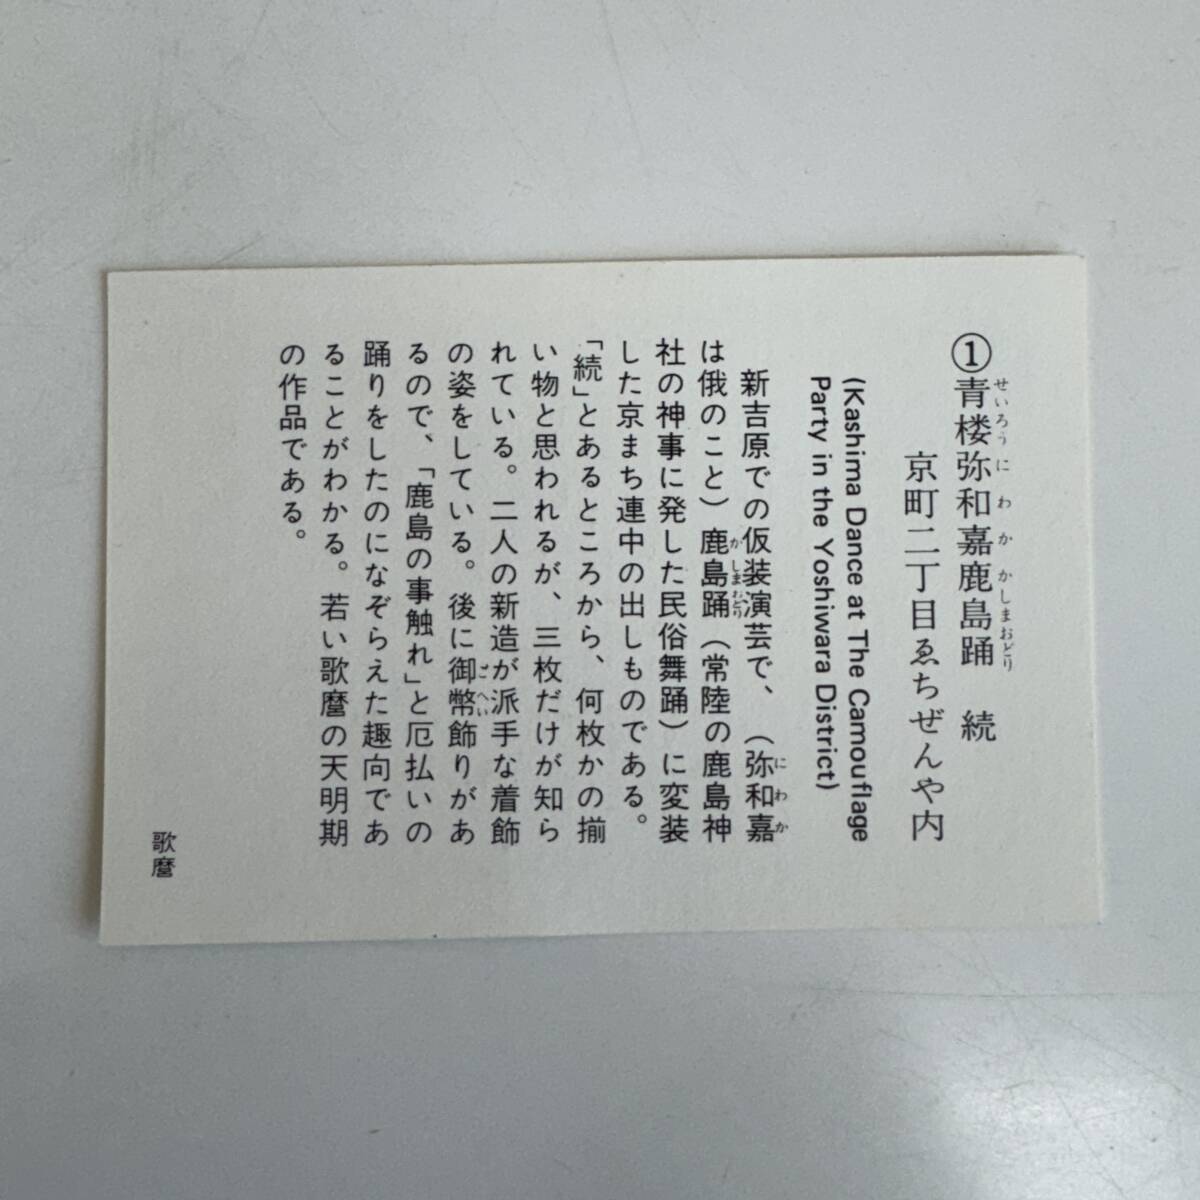 ①青楼弥和嘉鹿島踊　続
せいろうにわかかしまおどり
京町二丁目ゑちぜんや内
(Kashima Dance at The Camouflage
Party in the Yoshiwara District)
新吉原での仮装演芸で、（弥和嘉
にわか
は俄のこと）鹿島踊（常陸の鹿島神
かしまおどり
社の神事に発した民俗舞踊）に変装
した京まち連中の出しものである。
「続」とあるところから、何枚かの揃
い物と思われるが、三枚だけが知ら
れている。二人の新造が派手な着飾
の姿をしている。後に御幣飾りがあ
ごへい
るので、「鹿島の事触れ」と厄払いの
踊りをしたのになぞらえた趣向であ
ることがわかる。若い歌麿の天明期
の作品である。
歌麿